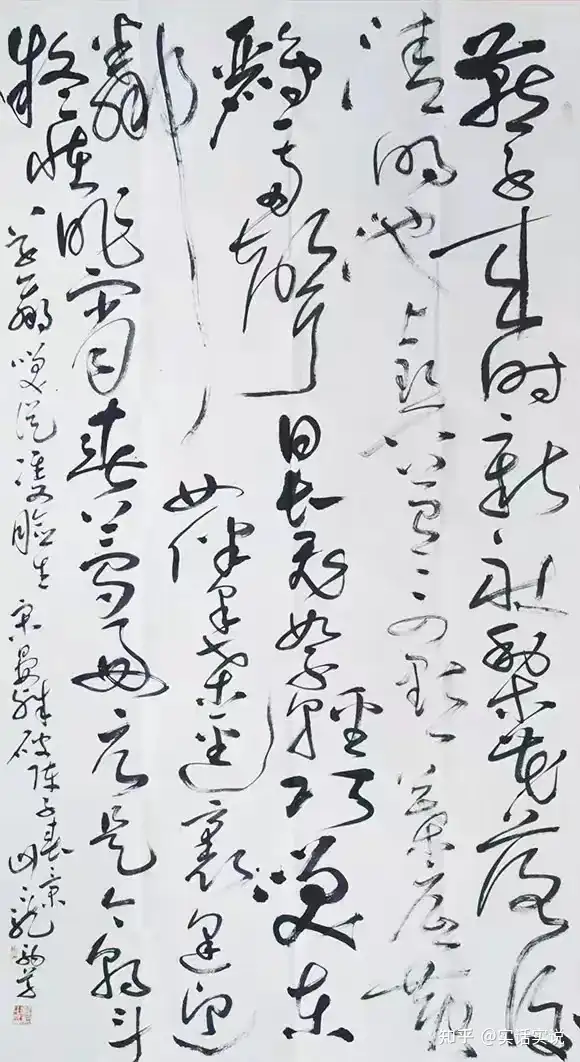 燕子来时新社梨花落后
清明池上碧苔三四点叶底黄
鹂一两声日长飞絮轻巧笑东
邻女伴采桑径里逢迎
疑怪昨宵春梦好元是今朝斗
草赢笑从双脸生 宋晏殊破阵子春景
知乎 @实话实说